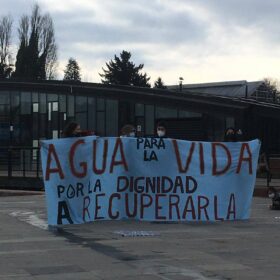 AGUA PARA LA VIDA
POR LA DIGNIDAD
A RECUPERARLA